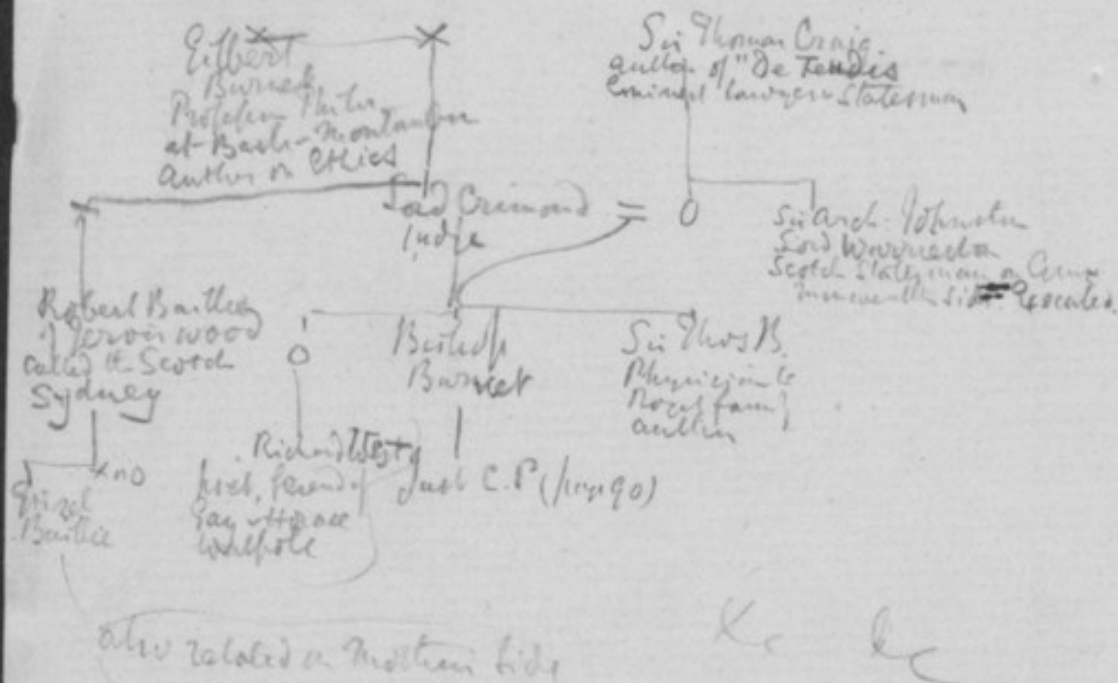 Gilbert
Burnet
Professor Philos.
at Basle - Montauban
author on Ethics
Sir Thomas Craig
author of "De Feudis
Eminent lawyer Statesman
Lord Crimond
Judge
=
O
Sir Arch. Johnston
Lord Warriston
Scotch Statesman on
side Executed
Robert Baillie
of Jerviswood
called the Scotch
Sydney
O
Bishop
Burnet
Sir Thos B.
Physician to
Royal family
author
Grizel
Baillie
Richard West
poet, friend of
Gay & Horace
Walpole
Just C.P (page 90)
also related on Mothers Side